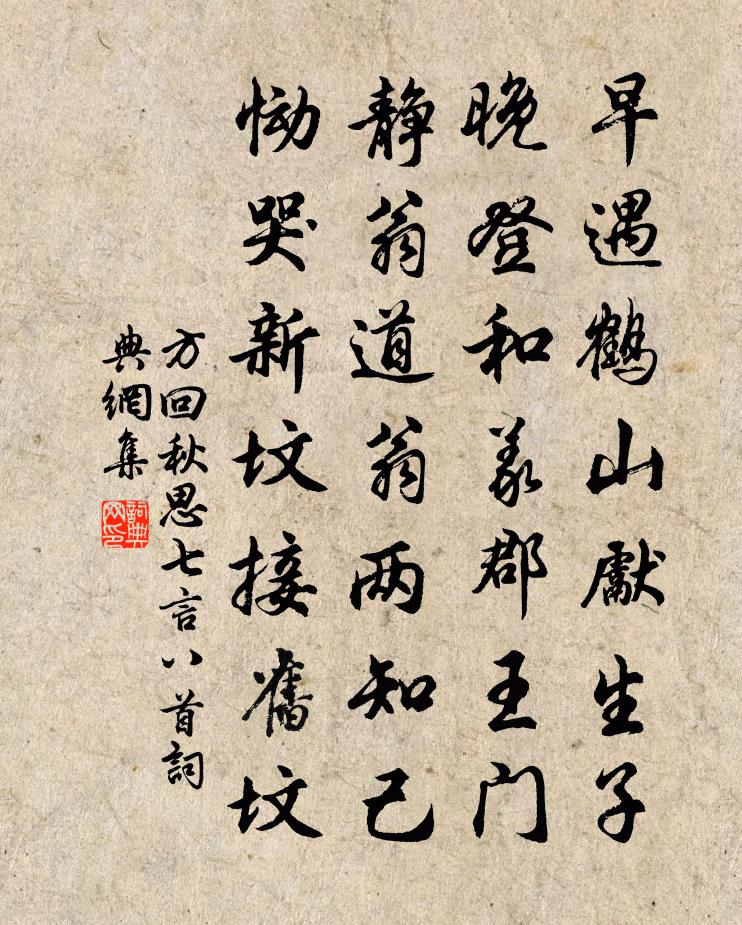 早遇鶴山獻生子
晚登和義郡王门
静翁道翁两知己
慟哭新坟接舊坟
方回秋思七言八首詞
典網集
詞典
网印